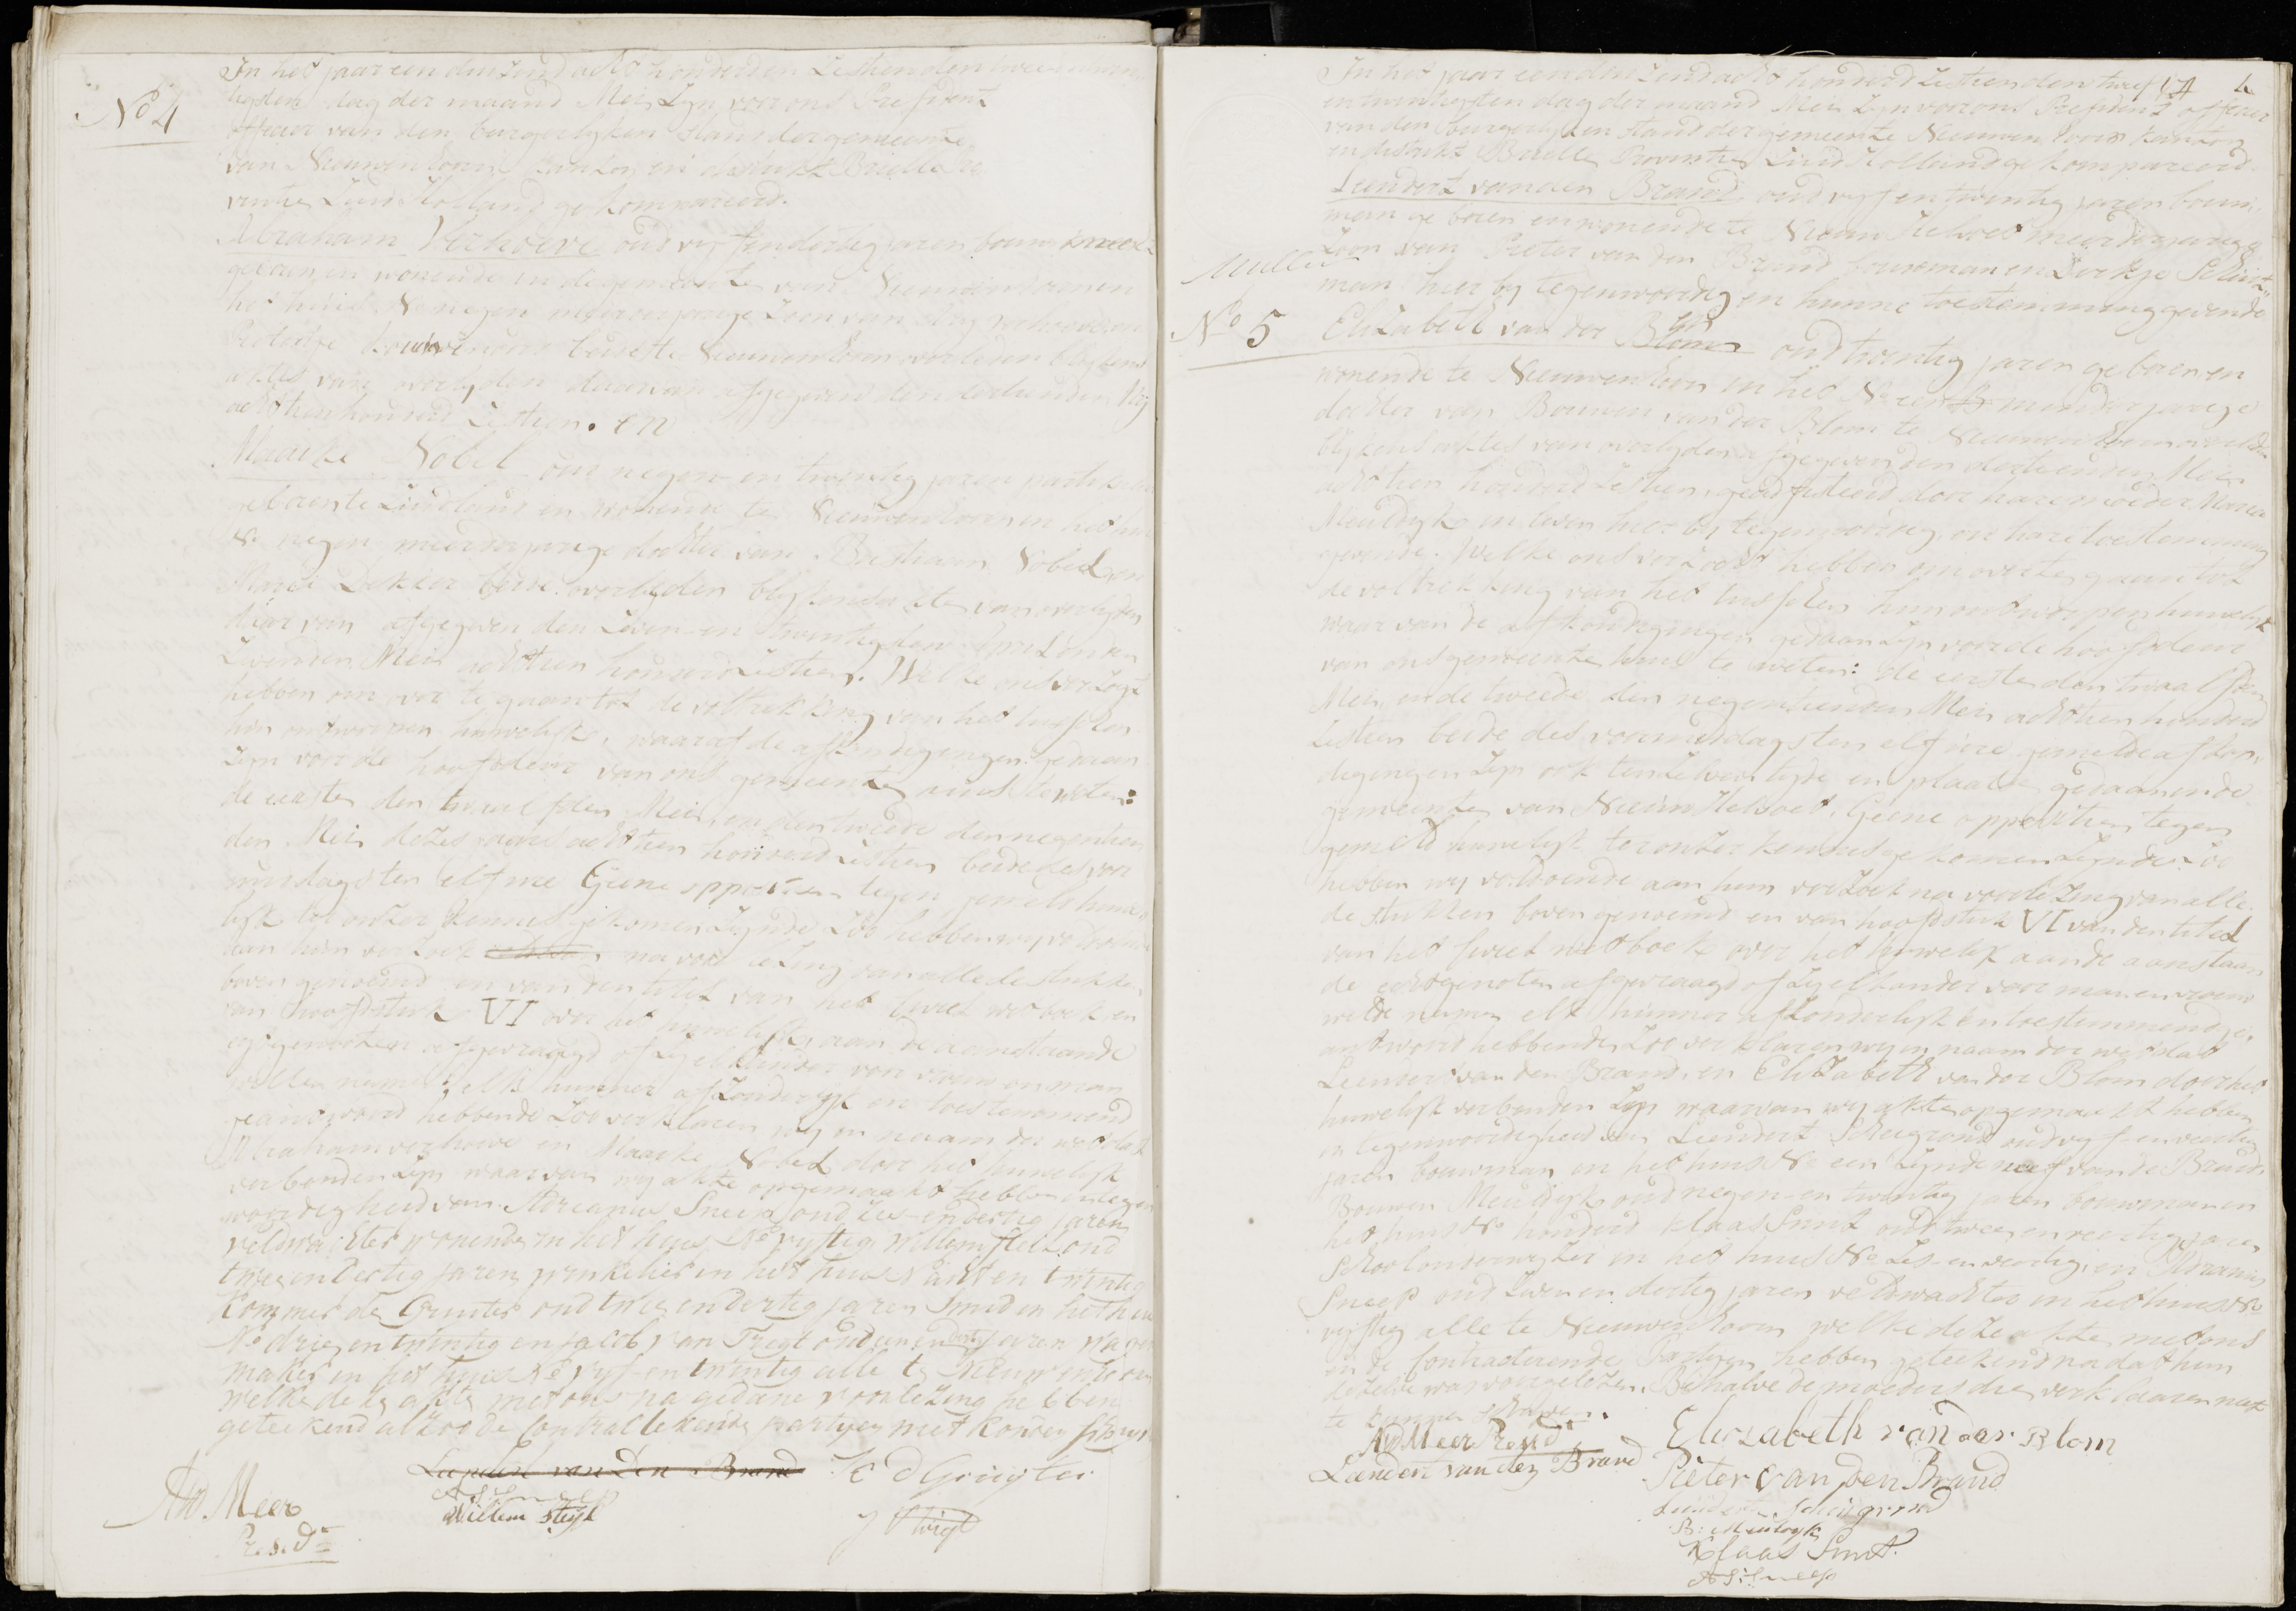 No 4
In het jaar een duizend acht honderd en Zesthien den twee en twin
tigsten dag der maand Mei, Zyn voor ons President
officier van den burgerlyken stand der gemeente
van Nieuwenhoorn Canton en distrikt Brielle Pro
vintie Zuid Holland gekompareerd.
Abraham Verhoeve oud vyf en dertig jaren bouwknecht
geboren en wonende in de gemeente van Nieuwenhoorn in
het huis No negen meerderjarige Zoon van
beide te Nieuwenhoorn overleden blykens
aktes van overlyden daarvan afgegeven den Mey
achthien honderd Zesthien. en
Maaike Nobel oud negen en twintig jaren
geboren te Zuidland en wonende te Nieuwenhoorn in het huis
No negen meerderjarige dochter van Bastiaan Nobel en
Maria Dekker beide overleden blykens akten van overlyden
daar van afgegeven den Zeven en twintigsten April en den
Mei achthien honderd Zesthien. Welke ons verzogt
hebben om over te gaan tot de voltrekking van het tusschen
hen ontworpen huwelyk, waaraf de afkondigingen gedaan
Zyn voor de hoofddeur van ons gemeente huis te weten:
de eerste den twaalfden Mei, en den tweede den negenthien
den Mei dezes jaars achthien honderd Zesthien beide des voor
middags ten elf ure Geene oppositien tegen gemeld huwe
lyk tot onzer kennis gekomen Zynde Zoo hebben wy voldoende
aan hun verzoek na voor leZing van alle de stukken
boven genoemd en van den titel van het Civiel wetboek en
van hoofdstuk VI over het huwelyk, aan de aanstaande
egtgenooten afgevraagd of Zy elkander voor vrouw en man
willen nemen, elk hunner afZonderlyk en toestemmend
geantwoord hebbende Zoo verklaren wy in naam der wet dat
Abraham verhoeve en Maaike Nobel door het huwelyk
verbonden Zyn waarvan wy akte opgemaakt hebben in tegen
woordigheid van Adrianus Sneep oud Zes en dertig jaren
veldwachter wonende in het huis No vyftig Willem Fleik oud
twee en dertig jaren winkelier in het huis No acht en twintig
Kommer de Gruiter oud twee en dertig jaren Smid in het huis
No drie en twintig en Jacob van Tregt oud een en dertig jaren wagen
maker in het huis No vyf en twintig alle te Nieuwenhoorn
welke deze akte met ons na gedane voorlezing hebben
geteekend alzoo de Contracterende partyen niet konden schryven
AvMeer
Presdt
Leendert van Den Brand
A Sneep
Willem Fleik
K d Gruyter
J Tregt
14 4
In het jaar een duizend acht honderd Zesthien den twee
en twintigsten dag der maand Mei Zyn voor ons President officier
van den burgerlyken stand der gemeente Nieuwenhoorn Kanton
en distrikt Brielle Provintie Zuid Holland gekompareerd.
Leendert van den Brand oud vyf en twintig jaren bouw
man geboren en wonende te Nieuw Helvoet meerderjarige
Zoon van Pieter van den Brand bouwman en
man hier by tegenwoordig en hunne toestemming gevende
No 5
Elizabeth van der Blom oud twintig jaren geboren en
wonende te Nieuwenhoorn in het No een minderjarige
dochter van Bouwen van der Blom te Nieuwenhoorn overleden
blykens aktes van overlyden afgegeven den dertienden Mei
achthien honderd Zesthien, geadsisteerd door hare moeder Maria
Meuldyk in leven hier by tegenwoordig en hare toestemming
gevende. Welke ons verzocht hebben om over te gaan tot
de voltrekking van het tusschen hun ontworpen huwelyk
waar van de afkondigingen gedaan Zyn voor de hoofddeur
van ons gemeente huis te weten: de eerste den twaalfden
Mei, en de tweede den negenthienden Mei achthien honderd
Zesthien beide des voormiddags ten elf ure gemelde afkon
digingen Zyn ook ten Zelven tyde en plaatse gedaan in de
gemeente van Nieuw Helvoet. Geene oppositien tegen
gemeld huwelyk ter onzer kennis gekomen Zynde Zoo
hebben wy voldoende aan hun verZoek na voorleZing van alle
de stukken boven genoemd en van hoofdstuk VI van den titel
van het Civiel wetboek over het huwelyk aan de aanstaan
de echtgenoten afgevraagd of Zy elkander voor man en vrouw
wilde nemen elk hunner afZonderlyk en toestemmend ge
antwoord hebbende, Zoo verklaren wy in naam der wet dat
Leendert van den Brand, en Elizabeth van der Blom door het
huwelyk verbonden Zyn waarvan wy akte opgemaakt hebben
in tegenwoordigheid van Leendert Scheigrond oud vyf en veertig
jaren bouwman in het huis No een Zynde neef van de Bruid
Bouwen Meuldyk oud negen en twintig jaren bouwman in
het huis No honderd Klaas Smit oud twee en veertig jaren
Schoolonderwyzer in het huis No Zes en veertig, en Adrianus
Sneep oud Zeven en dertig jaren veldwachter in het huis No
vyftig alle te Nieuwenhoorn welke deze akte met ons
en de Contracterende Partyen hebben geteekend na dat hun
dezelve was voorgelezen. Behalve de moeders die verklaaren niet
te kunnen schryven.
AvMeer Presdt
Leendert van den Brand
Elizabeth van der Blom
Pieter van den Brand
Leendert Scheigrond
B: Meuldyk
Klaas Smit.
A Sneep